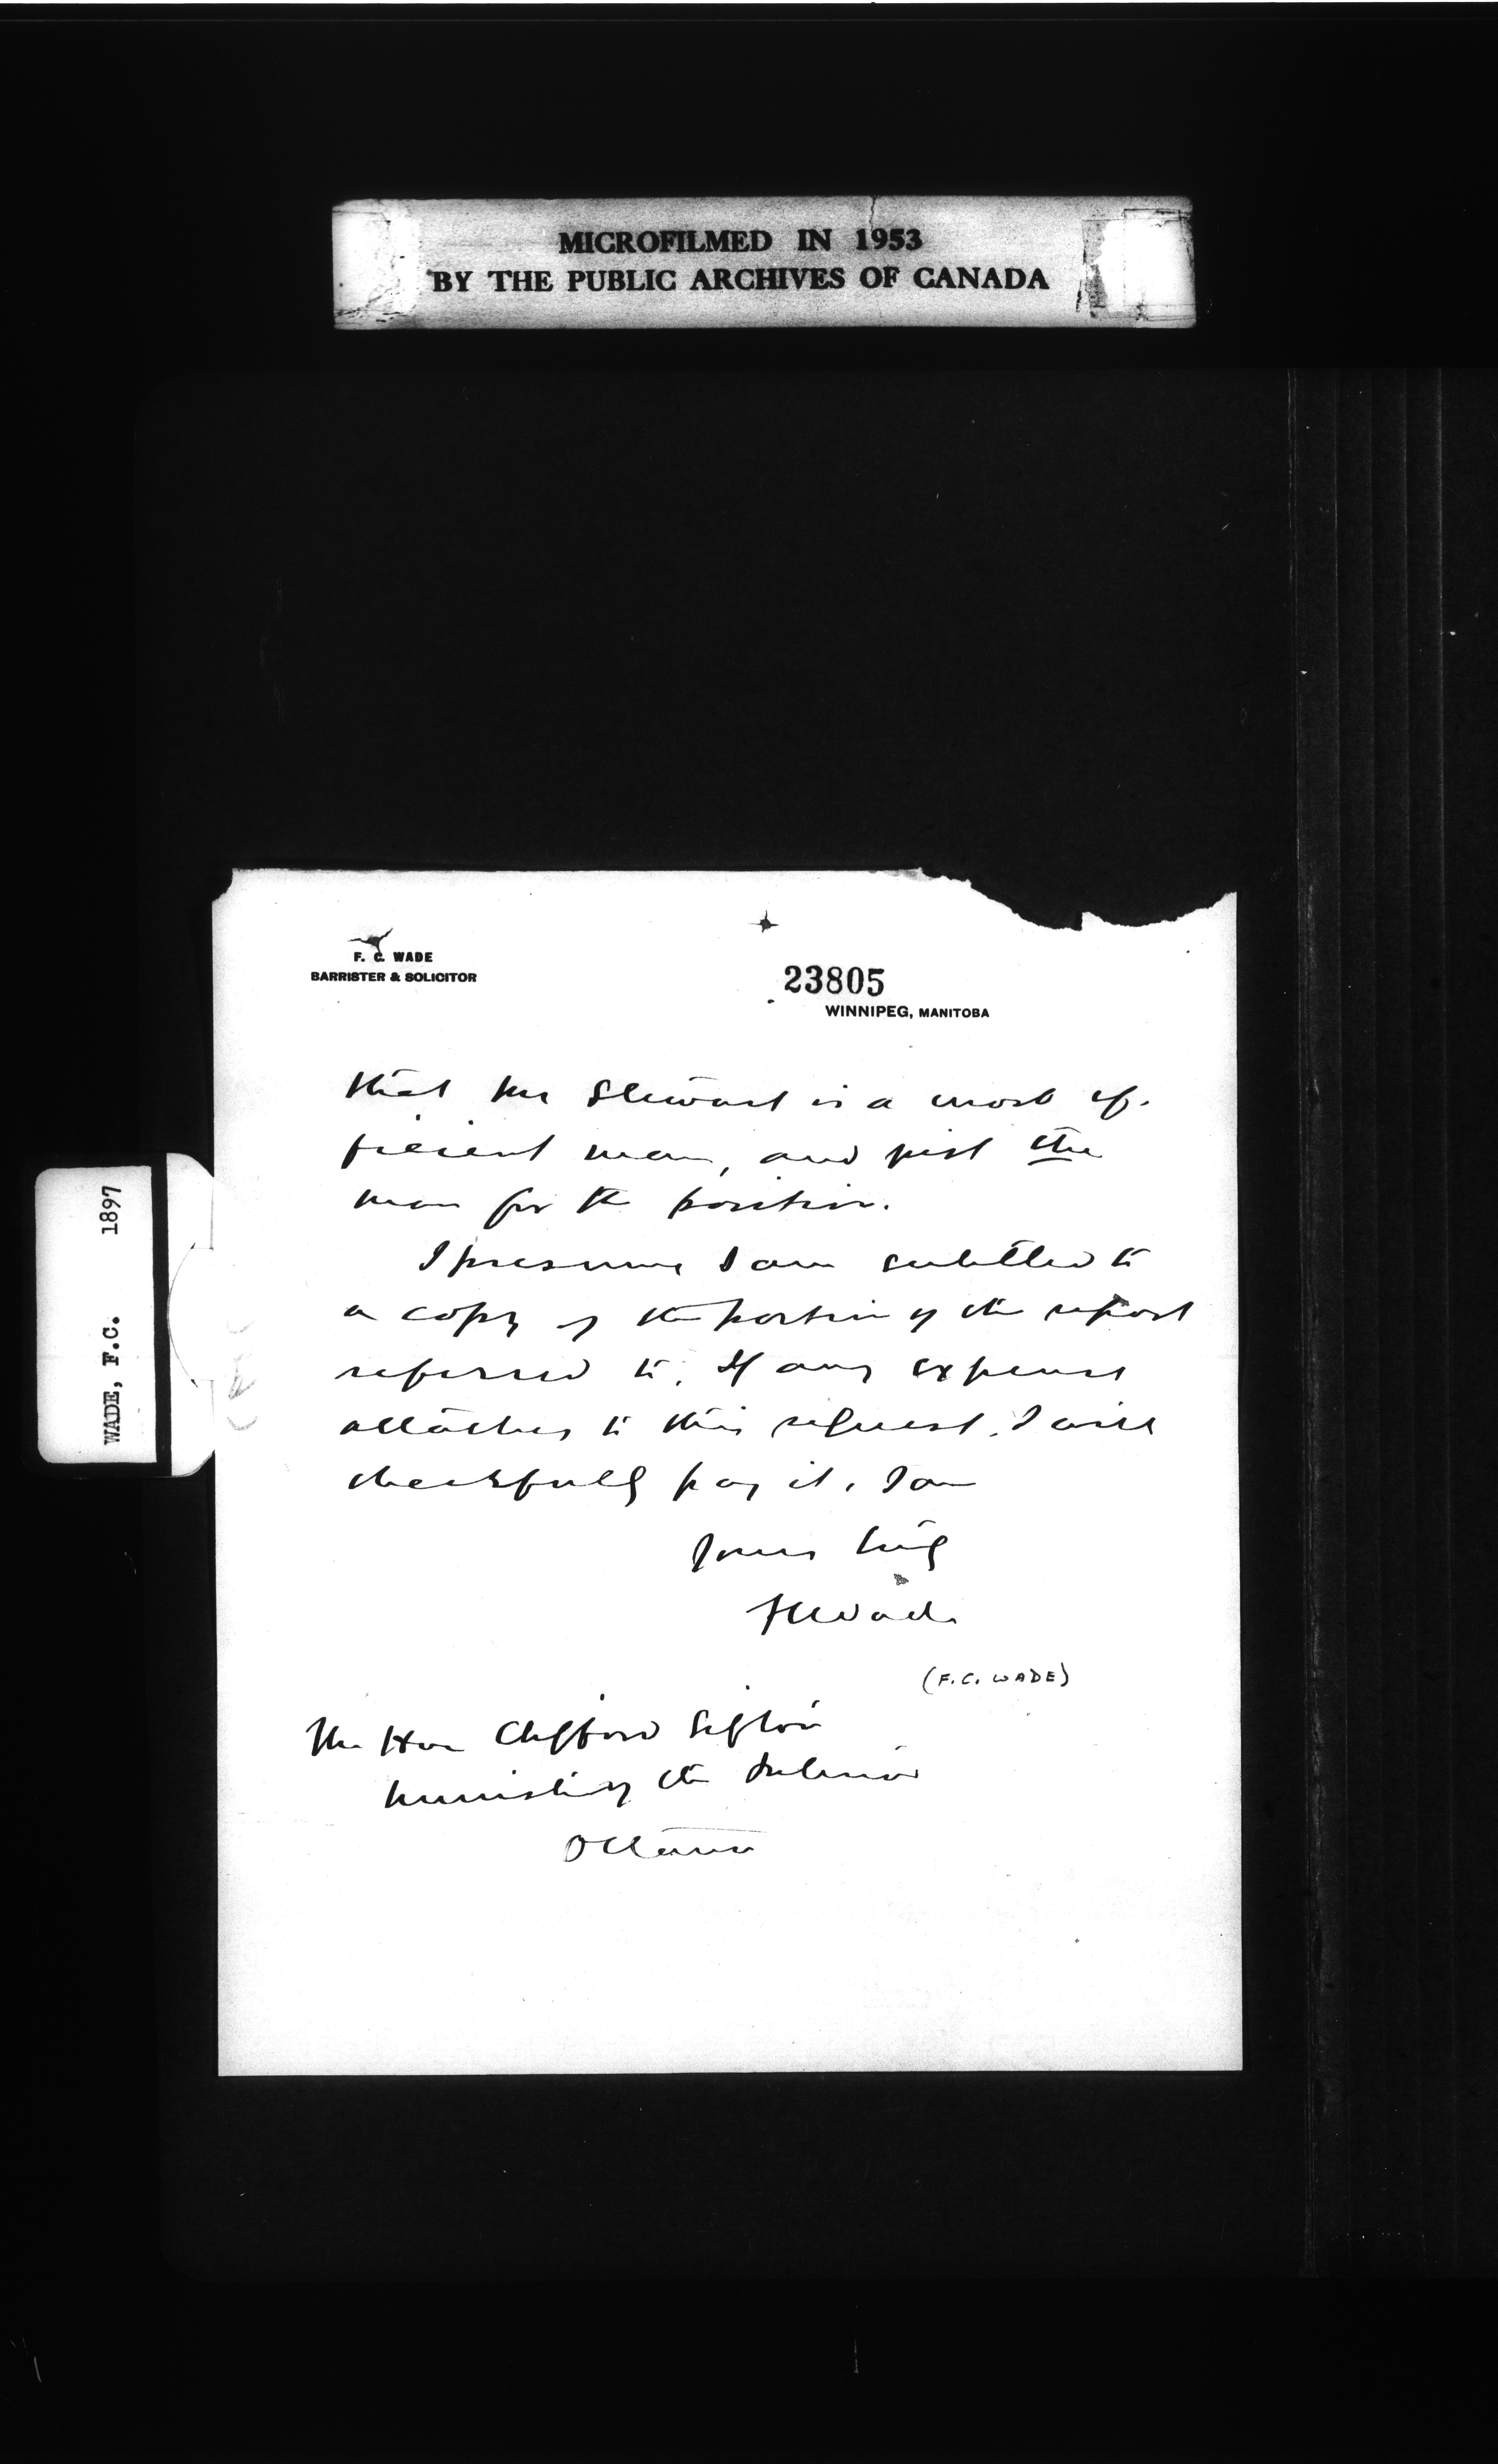 MICROFILMED IN 1953
BY THE PUBLIC ARCHIVES OF CANADA
WADE, F.C. 1897
F. C. WADE
BARRISTER & SOLICITOR
23805
WINNIPEG, MANITOBA
that Mr Stewart is a most ef-
ficient man, and just the
man for the position.
I presume I am entitled to
a copy of the portion of the report
referred to. If any expense
attaches to this request, I will
cheerfully pay it. I am
Yours truly
FCWade
(F.C. WADE)
The Hon Clifford Sifton
Minister of the Interior
Ottawa